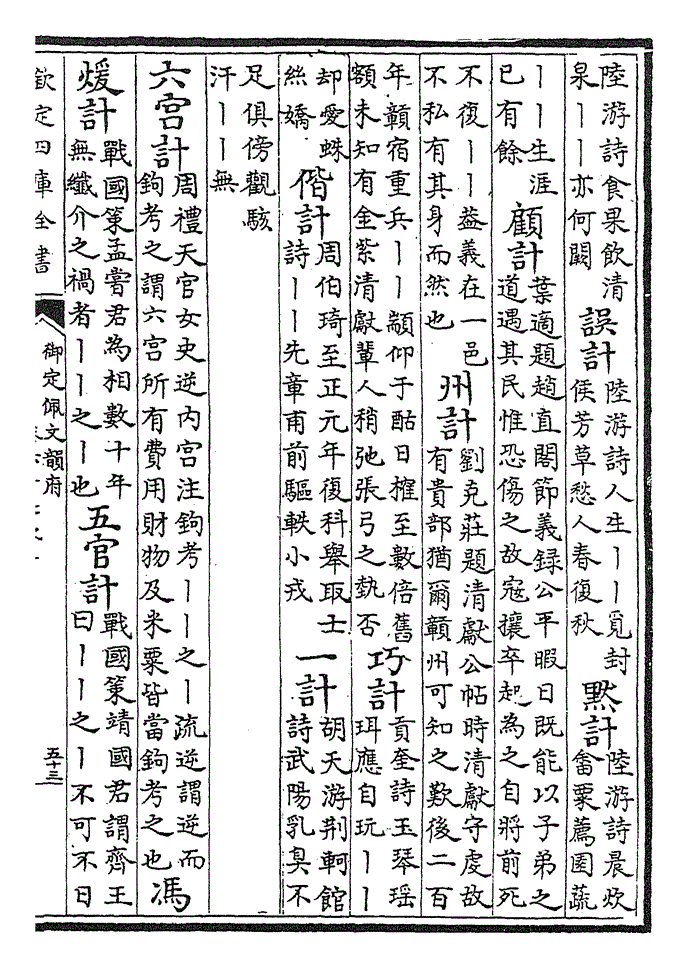 陸游詩食果飲清
泉丨丨亦何闕
誤計
陸游詩人生丨丨覓封
侯芳草愁人春復秋
黙計
陸游詩晨炊
畬粟薦園蔬
丨丨生涯
已有餘
顧計
葉適題趙直閣節義録公平暇日既能以子弟之
道遇其民惟恐傷之故冦攘卒起為之自將前死
不復丨丨葢義在一邑
不私有其身而然也
州計
劉克莊題清獻公帖時清獻守虔故
有貴部猶爾贑州可知之歎後二百
年贑宿重兵丨丨顓仰于酤日榷至數倍舊
額未知有金紫清獻輩人稍弛張弓之埶否
巧計
貢奎詩玉琴瑶
珥應自玩丨丨
却愛蛛
絲嬌
偕計
周伯琦至正元年復科舉取士
詩丨丨先章甫前驅軼小戎
一計
胡天游荆軻館
詩武陽乳臭不
足俱傍觀駭
汗丨丨無
六宫計
周禮天官女史逆内宫注鉤考丨丨之丨疏逆謂逆而
鉤考之謂六宫所有費用財物及米粟皆當鉤考之也
馮
煖計
戰國策孟嘗君為相數十年
無纎介之禍者丨丨之丨也
五官計
戰國策靖國君謂齊王
曰丨丨之丨不可不日
欽定四庫全書
御定佩文韻府
五十三